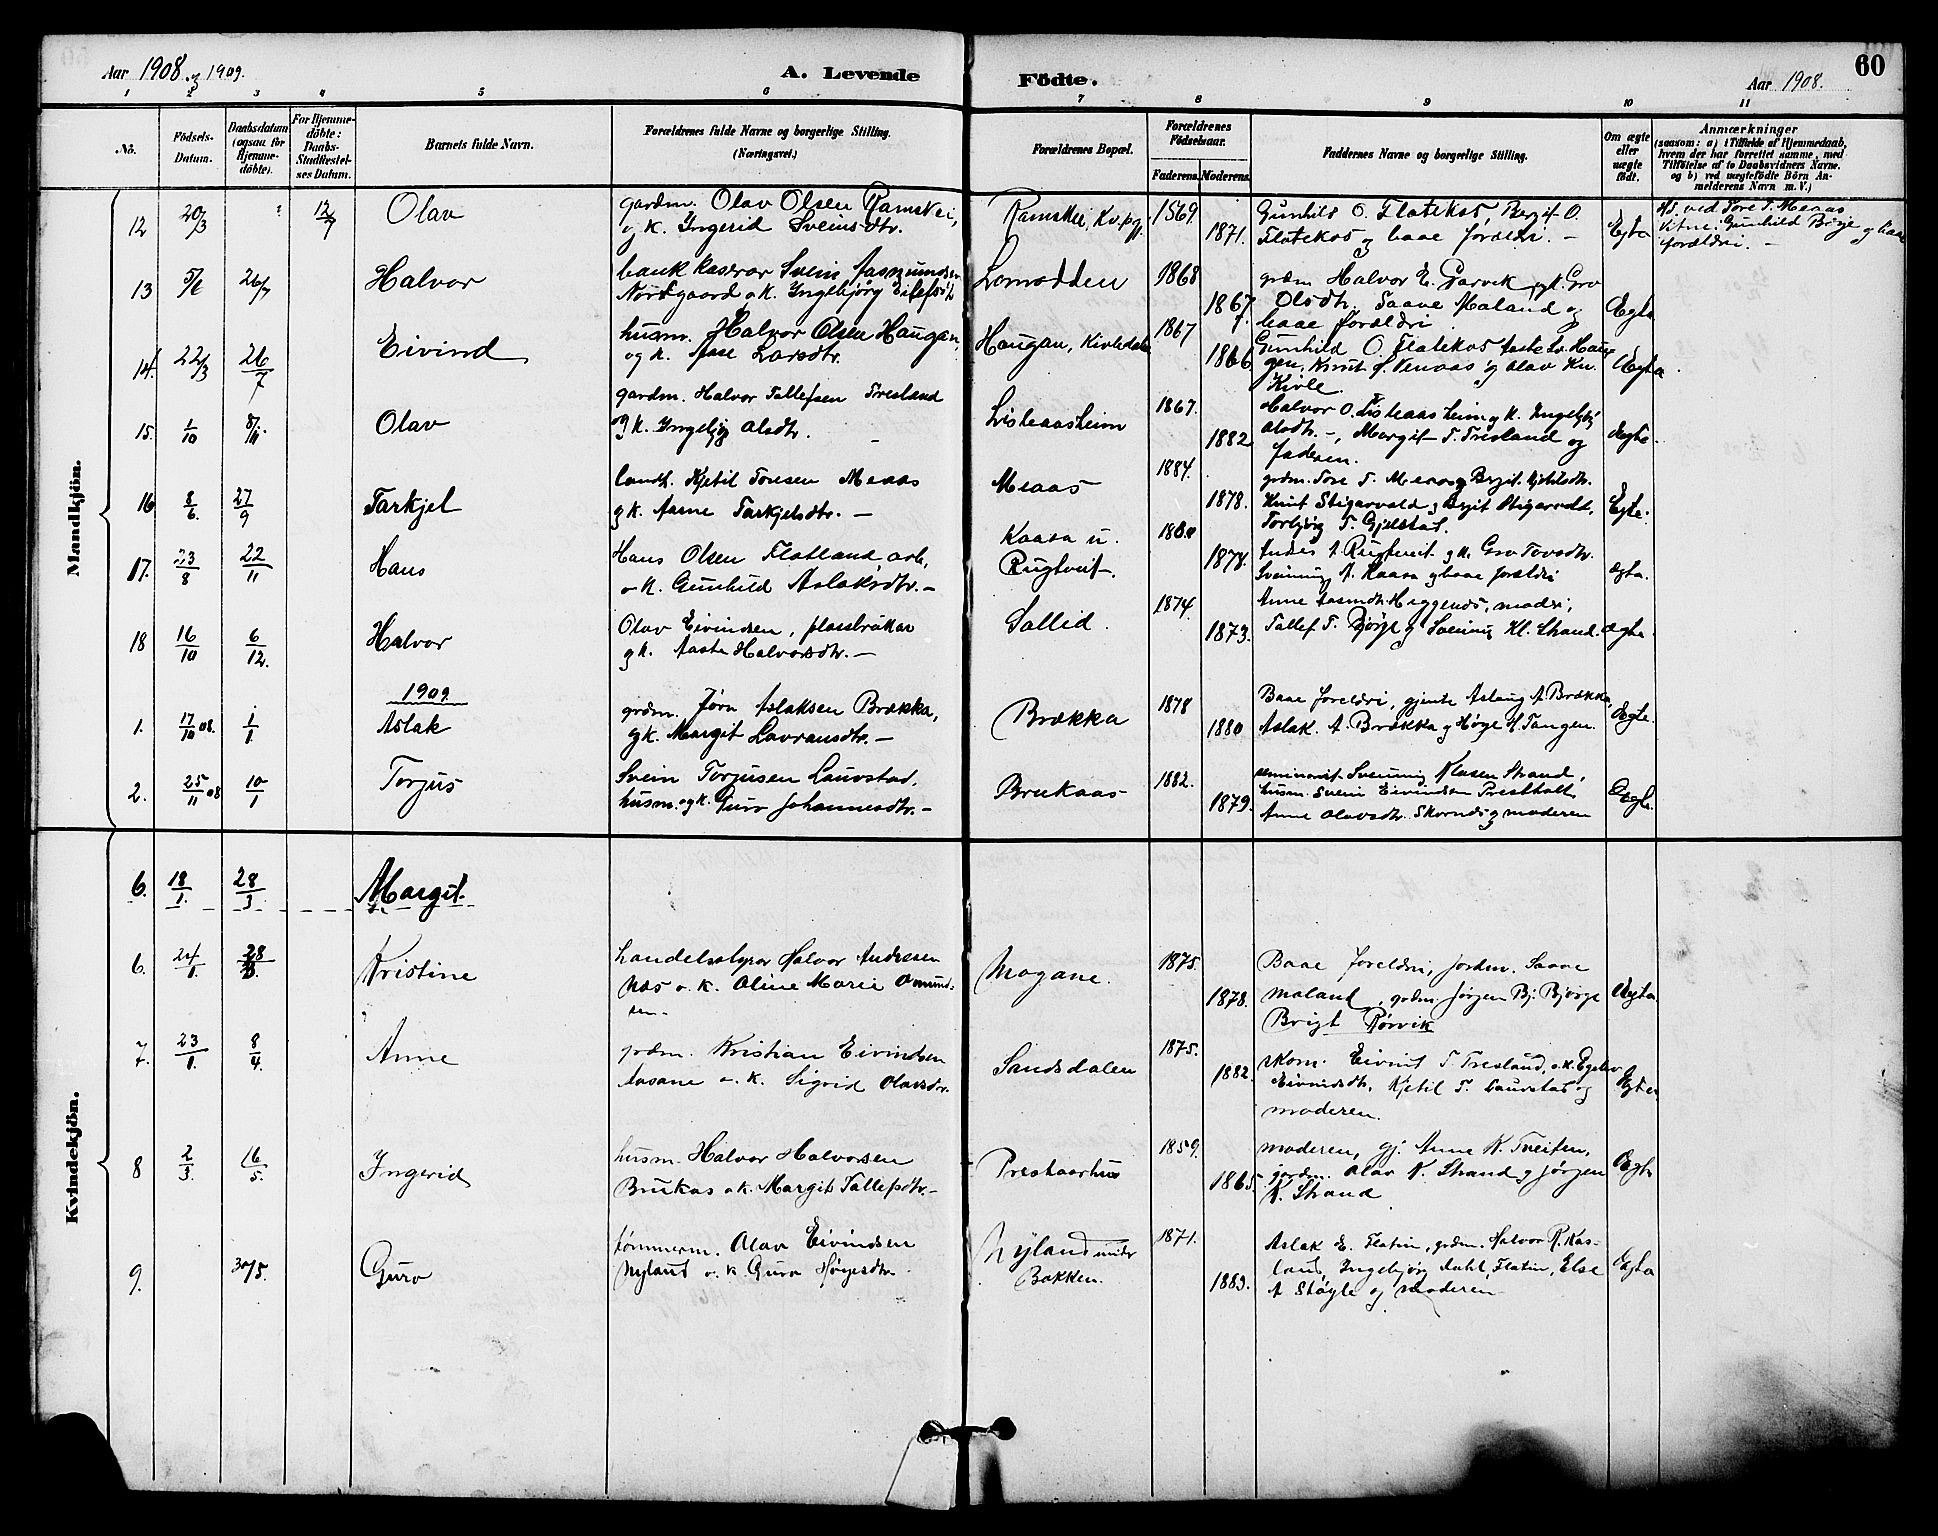 Aar 1908 og 1909.
A. Levende Födte.
Aar 1908.
60
1 2 3 4 5 6 7 8 9 10 11
No.
Födsels-Datum.
Daabsdatum (ogsaa for Hjemmedöbte).
For Hjemmedöbte: Daabs-Stadfæstelses Datum.
Barnets fulde Navn.
Forældrenes fulde Navne og borgerlige Stilling.
(Næringsvei.)
Forældrenes Bopæl.
Forældrenes Födselsaar.
Faderens.
Moderens.
Faddernes Navne og borgerlige Stilling.
Om ægte eller uægte födt.
Anmærkninger
(saasom: a) i Tilfælde af Hjemmedaab, hvem der har forrettet samme, med Tilföielse af to Daabsvidners Navne. og b) ved uægtefödte Börn Anmelderens Navn m. V.)
Mandkjön.
12 20/3 12/7 Olav
gardm. Olav Olsen Ramskei,
og k. Ingerid Sveinsdtr.
Ramskei, Kv.pgj. 1869 1871.
Gunhild O. Flatekos, Bergit O.
Flatekos og baae foræeldri. -
Egta
Hd. ved Tore T. Meaas
Vitne: Gunhild Börje og baae
foræeldri. -
13 5/6 26/7 Halvor
bank kaserar Svein Aasmundsen
Nordgaard o k. Ingebjørg Eilefsdtr
Lomodden 1868 1867.
grdm Halvor E. Garvik og k. Gro
Olsdtr. Saave Maland og
baae foræeldri
Egta
14. 22/3 26/7 Eivind
husm. Halvor Olsen Haugan,
og k. Aase Larsdtr.
Haugan, Kivledalen 1867 1866
Gunhild O. Flatekos Aaste Sv. Haugen, Knut S. Venaas og Olav Kn.
Kivle.
Ægta
15. 1/10 8/11 Olav
gardm. Halvor Tallefsen Tresland
og k. Ingebjg Olsdtr.
Lisleaasheim 1867. 1882
Halvor O. Lisleaasheim og k. Ingebjg
Olsdtr. -, Margit T. Tresland og
faderen.
Ægte.
16 8/6. 27/9 Tarkjel
landh. Kjetil Toresen Meaas
og k. Aasne Tarkjelsdtr. -
Meaas 1884. 1878.
grdm. Tore T. Meaas og Bergit Kjetilsdtr.
Knut Stigarvold og Bergit Stigarvold,
Torbjörg T. Gjelstad.
Egte.
17. 23/8 22/11 Hans
Hans Olsen Flatland, arb,
o k. Gunhild Aslaksdtr. -
Kaasa u. Rugtveit. 1878.
Andres A. Rugtveit og k. Gro Tovsdtr.
Sveinung A. Kaasa og baae foræeldri
ægta.
18 16/10 6/12. Halvor
Olav Eivindsen, plassbrukar
og k. Aaste Halvorsdtr. -
Sollid. 1874 1873.
Anne Aasmdtr. Heggenes, modri,
Tallef T. Björge og Sveinung Kl. Strand.
ægta.
1909
1. 17/10 08. 1/1 Aslak
grdm. Jörn Aslaksen Brækka,
og k. Margit Lavransdtr. -
Brækka 1878 1880
Baae foreldri, gjente Aslaug A. Brækka,
Aslak. A. Brækka og Höge H. Tangen.
Ægte.
2. 25/11 08 10/1 Torjus
Svein Torjusen Lauvstad,
husm. og k. Guro Johannesdtr. -
Brukaas 1882. 1879.
seminarist Sveinung Klasen Strand,
husm. Svein Eivindsen Prestholt
Anne Olavsdtr. Skornes og moderen
Ægte.
Kvindekjön.
6. 18/1. 28/3 Margit.
6. 24/1. 28/3. Kristine
handelsstyrar Halvor Andresen
Næs o. k. Oline Marie Omundsen-
Mogane. 1875. 1878.
Baae foreldri, jordm. Saave
Maland, grdm. Jørgen Bj. Björge
Brigt Rörvik
Ægta
7. 23/1. 8/4. Anne
grdm. Kristian Eivindsen
Aasane o. k. Sigrid Olavsdtr.
Sandsdalen 1875. 1882.
skom. Eivint T. Tresland, o. k.
Eivindsdtr, Kjetil T. Lauvstad og
moderen.
Egta
8 2/3. 16/5. Ingerid
husm. Halvor Halvorsen
Brukas o k. Margit Tallefsdtr. -
Prestaarhus 1859. 1865.
moderen, gj. Anne K. Tveiten,
Olav K. Strand og Jørgen
K. Strand
Ægta
9. 30/5. Guro
tömmerm. Olav Eivindsen
Nyland o. k. Guro Höyesdtr.
Nyland under Bakken. 1871. 1883.
Aslak E. Flatin, grdm. Halvor R. Kosland, Ingebjörg Flatin, Else
A Stöyle og moderen
Ægta